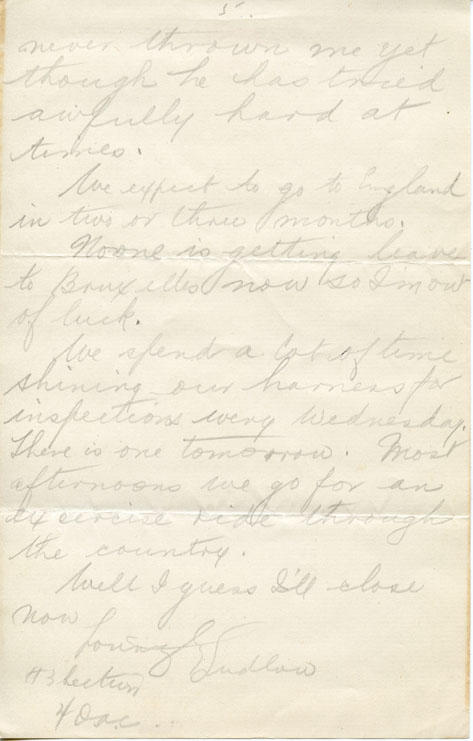 5.
never thrown me yet
though he has tried
awfully hard at
times.
We expect to go to England
in two or three months.
Noone is getting leave
to Bruxelles now so I'm out
of luck.
We spend a lot of time
shining our harness for
inspections every Wednesday.
There is one tomorrow. Most
afternoons we go for an
exercise ride through
the country.
Well I guess I'll close
now
Lovingly
Ludlow
#3 Section
4 DAC